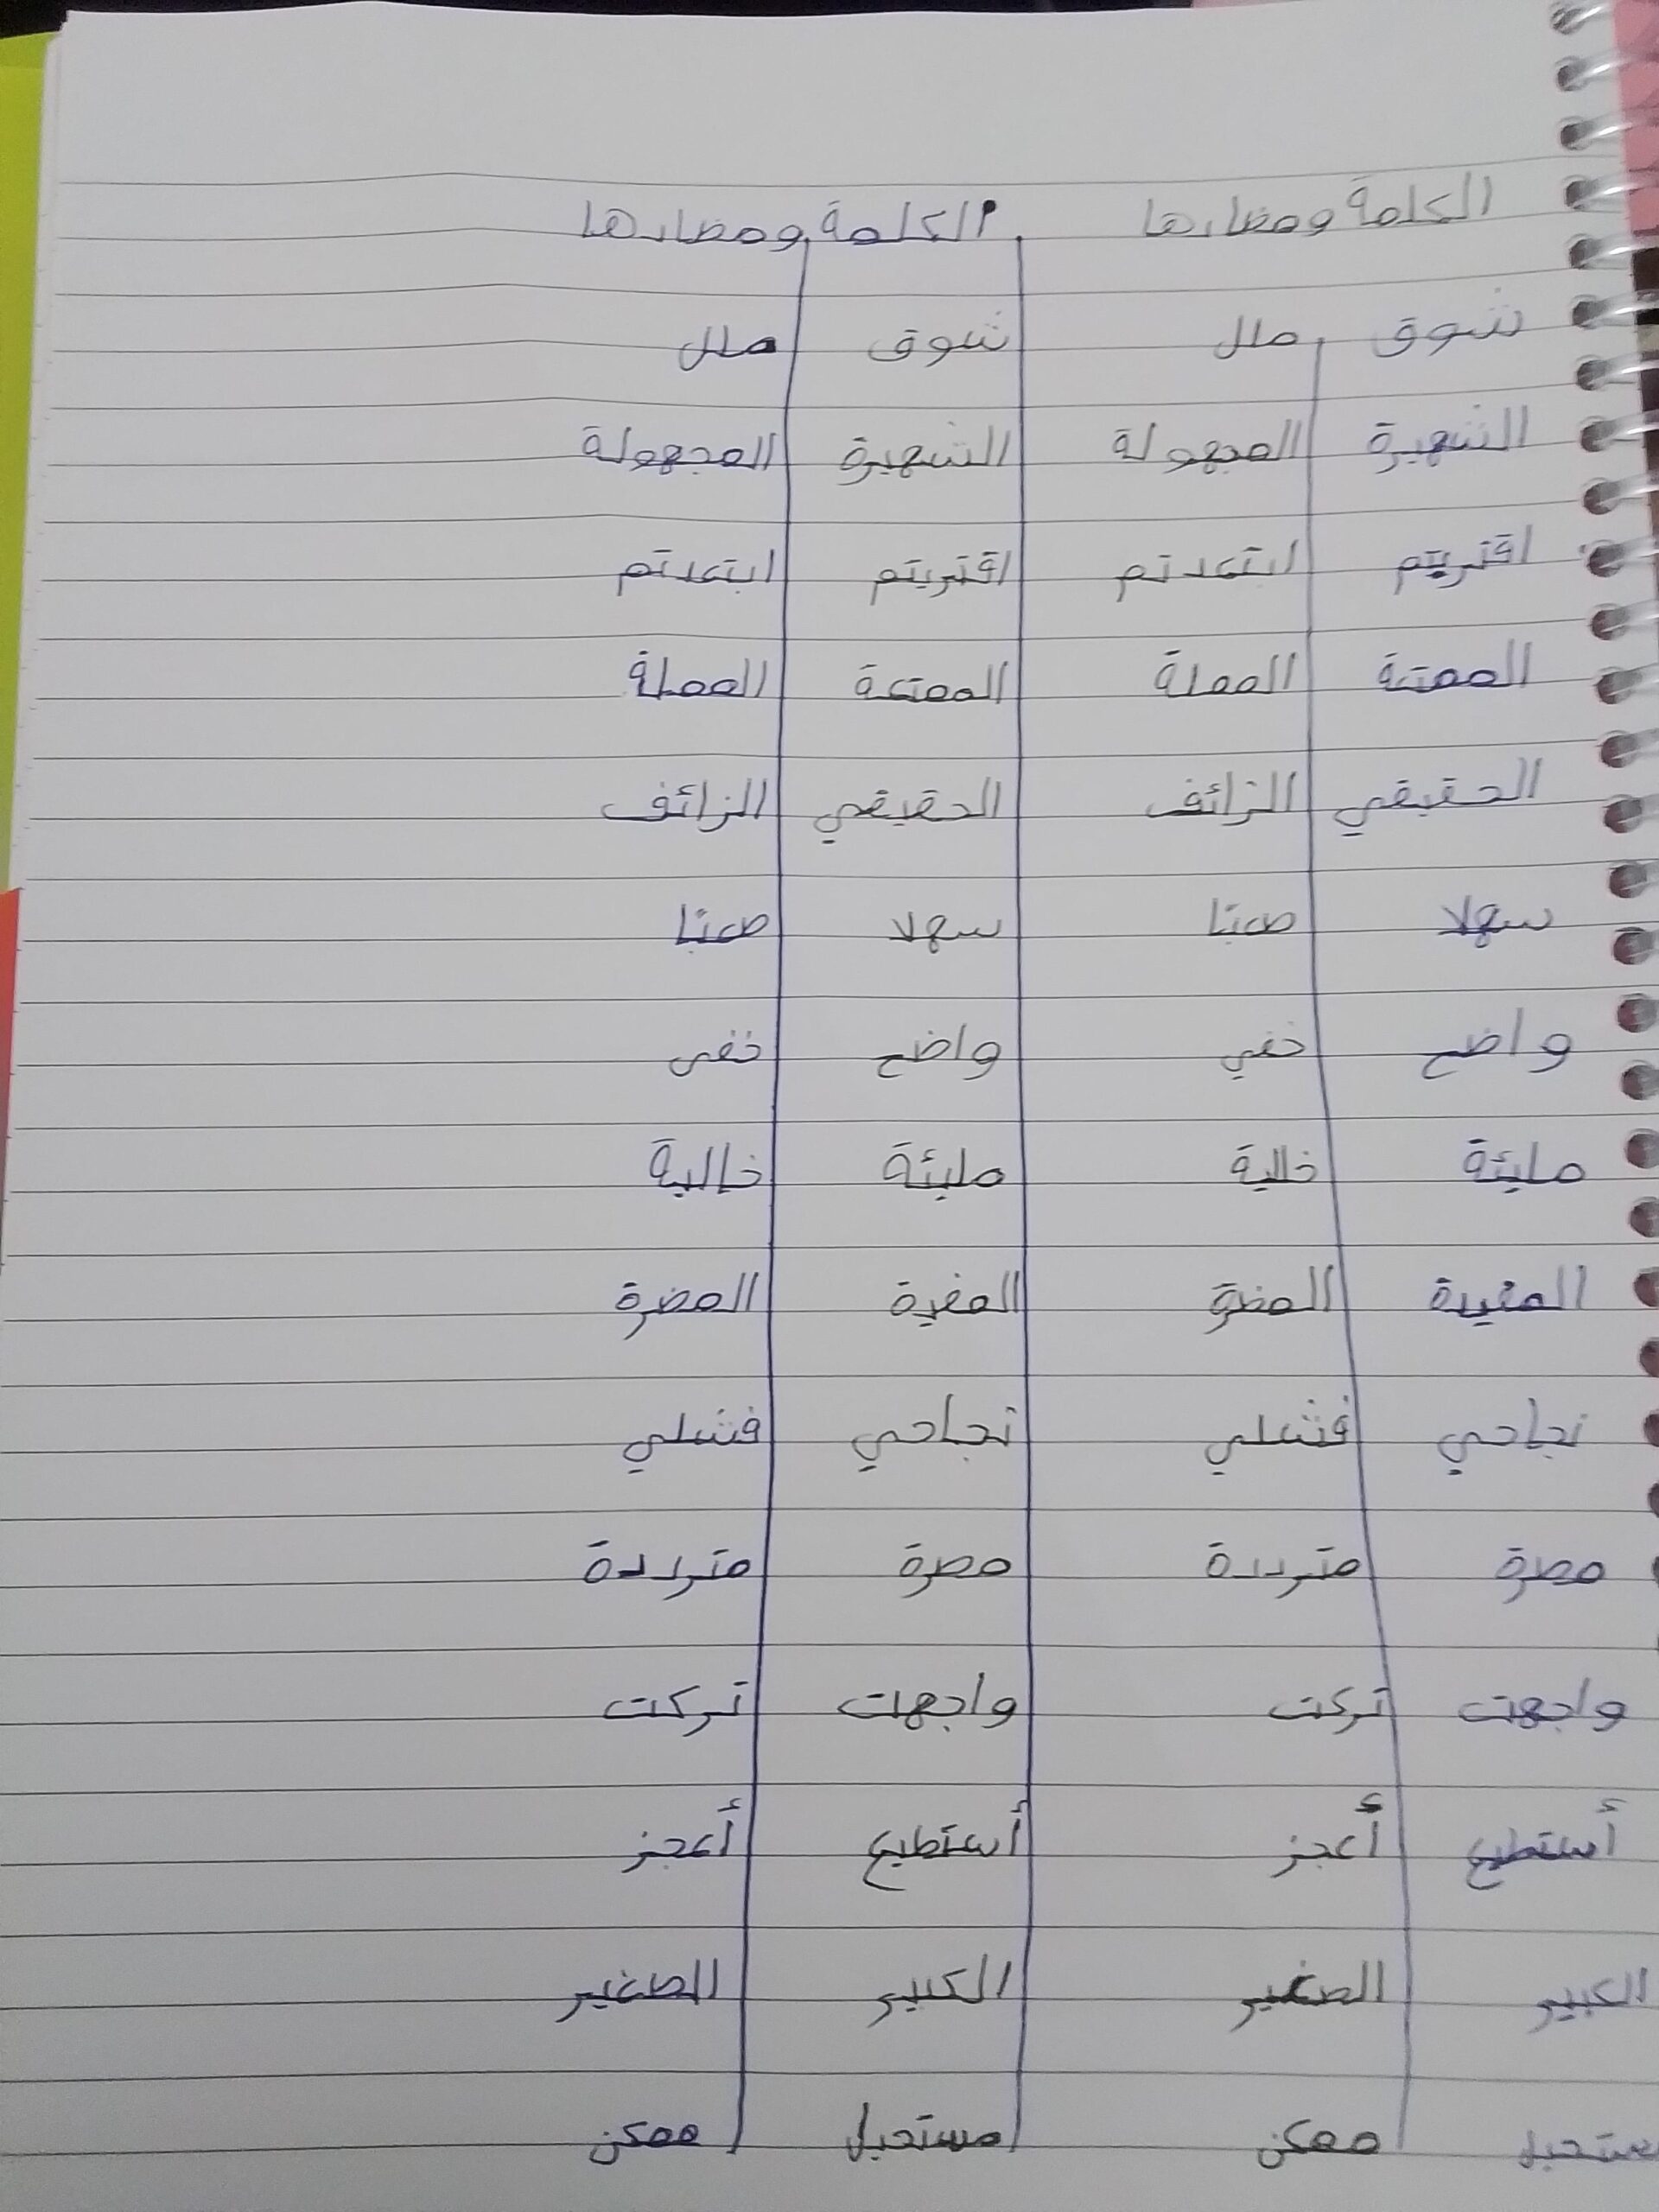 الكلمة ومضارها الكلمة ومضارها
شوق ملل شوق ملل
الشهيرة المجهولة الشهيرة المجهولة
اقتربتم ابتعدتم اقتربتم ابتعدتم
الممتعة المملة الممتعة المملة
الحقيقي الزائف الحقيقي الزائف
سهلا صعبا سهلا صعبا
واضح خفي واضح خفي
مليئة خالية مليئة خالية
المفيدة المضرة المفيدة المضرة
نجاحي فشلي نجاحي فشلي
مصرة مترددة مصرة مترددة
واجهت تركت واجهت تركت
أستطيع أعجز أستطيع أعجز
الكبير الصغير الكبير الصغير
مستحيل ممكن مستحيل ممكن